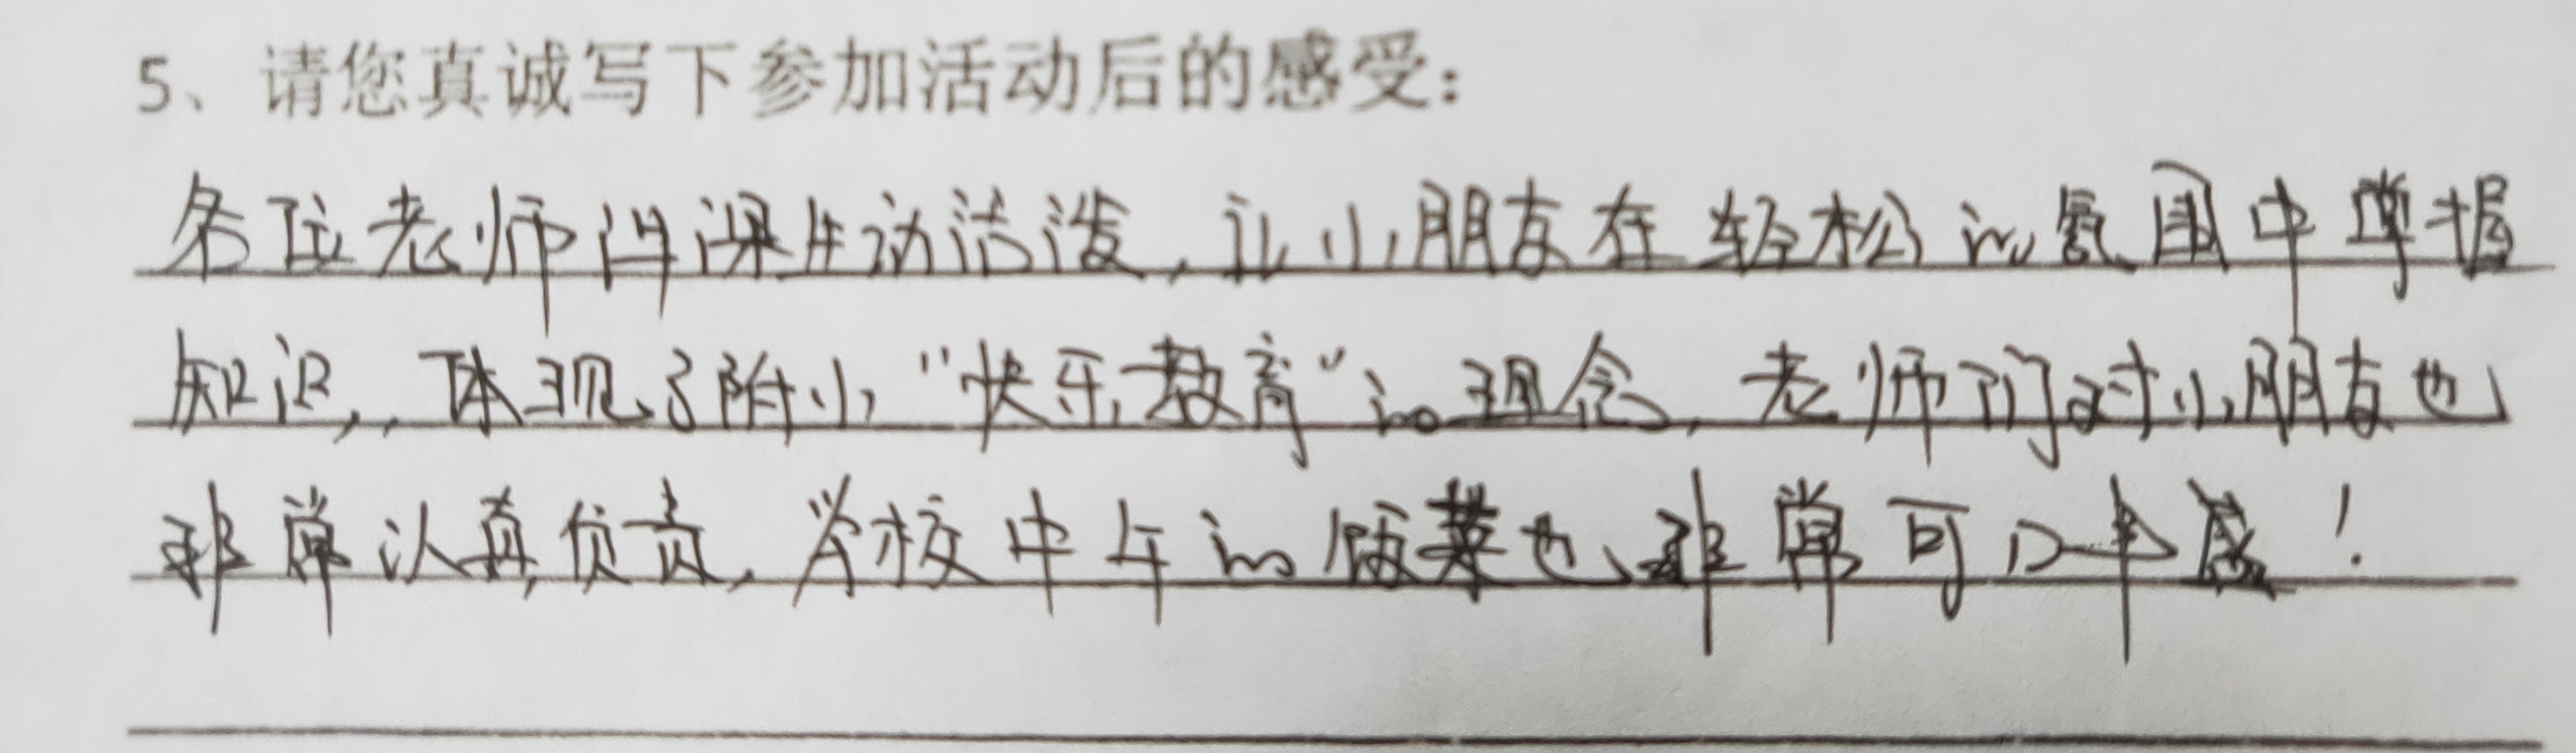 5、请您真诚写下参加活动后的感受：
各位老师讲课生动活泼，让小朋友在轻松的氛围中掌握
知识，体现了附小“快乐教育”的理念，老师们对小朋友也
非常认真负责，学校中午的饭菜也非常可口丰盛！